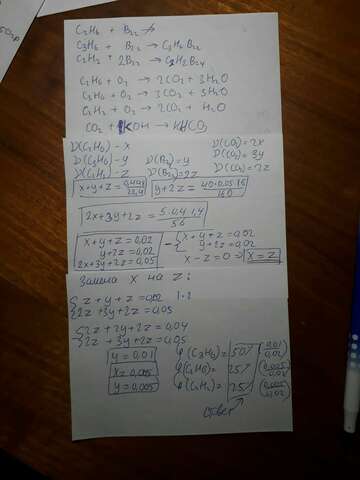 C2H6 + Br2 ↛
C3H6 + Br2 → C3H6Br2
C2H2 + 2Br2 → C2H2Br4
C2H6 + O2 → 2CO2 + 3H2O
C3H6 + O2 → 3CO2 + 3H2O
C2H2 + O2 → 2CO2 + H2O
CO2 + KOH → KHCO3
ν(C2H6) - x ν(CO2) = 2x
ν(C3H6) - y ν(Br2) = y ν(CO2) = 3y
ν(C2H2) - z ν(Br2) = 2z ν(CO2) = 2z
x+y+z = 0,448/22,4 y+2z = 40·0,05·1,6/160
2x+3y+2z = 5·0,4·1,4/56
x+y+z = 0,02
y+2z = 0,02
2x+3y+2z = 0,05
- { x+y+z = 0,02
y+2z = 0,02
x - z = 0 ⇒ x = z
Замена x на z:
{ z + y + z = 0,02 | · 2
2z + 3y + 2z = 0,05
{ 2z + 2y + 2z = 0,04
2z + 3y + 2z = 0,05
y = 0,01 φ(C3H6) = 50% (0,01/0,02)
x = 0,005 φ(C2H6) = 25% (0,005/0,02)
y = 0,005 φ(C2H2) = 25% (0,005/0,02)
ответ